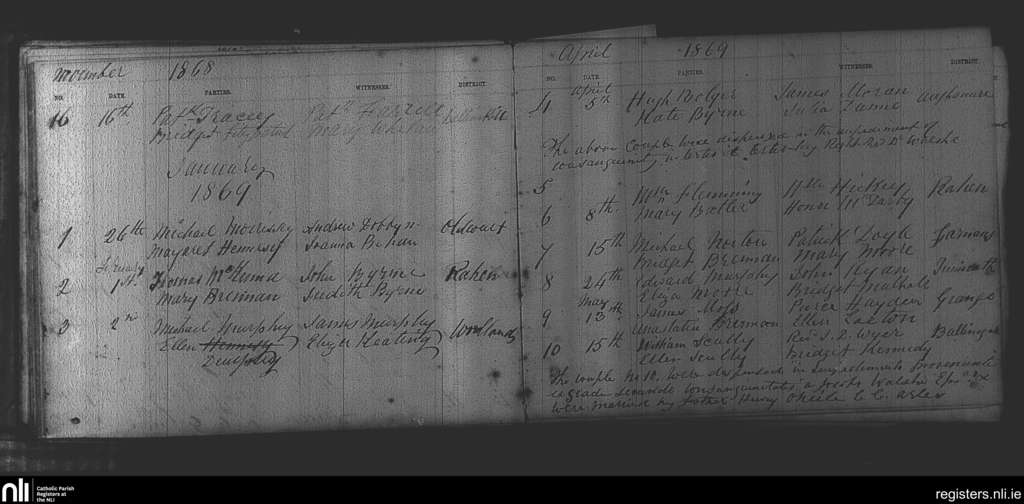 November 1868
NO. DATE. PARTIES. WITNESSES. DISTRICT.
16 16th Patk Tracey Patk Farrell
Bridget Fitzpatrick Mary Whelan
January
1869
1 26th Michael Morissey Andrew Dobbyn Oldcourt
Margaret Hennessy Joanna Behan
February
2 1st Thomas McKenna John Byrne Rahen
Mary Brennan Judith Byrne
3 2nd Michael Murphy James Murphy
Ellen Hennessy Eliza Keating
Dempsey
April 1869
NO. DATE PARTIES. WITNESSES. DISTRICT.
April
4 5th Hugh Bolger James Moran
Kate Byrne Julia
The above Couple were dispensed in the impediment of
consanguinity in tertio et tertio by Right Revd Dr Walshe
5 Wm Flemming Hickey Rahen
6 8th Mary Butler Honor McDarby
7 15th Michael Norton Patrick Doyle
Bridget Brennan Mary Moore
8 24th Edward Murphy John Ryan
Eliza Moore Bridget Mulhall
May
9 13th James Moss Pierce Hayden Grange
Anastatia Brennan Ellen
10 15th William Scully Rev. J. D. Wyer
Ellen Scully Bridget Kennedy
The couple No 10. were dispensed in
gradu secundo consanguinitatis a Walshe
were married by Father Henry C. C.
nli
Catholic Parish
Registers at
the NLI
registers.nli.ie